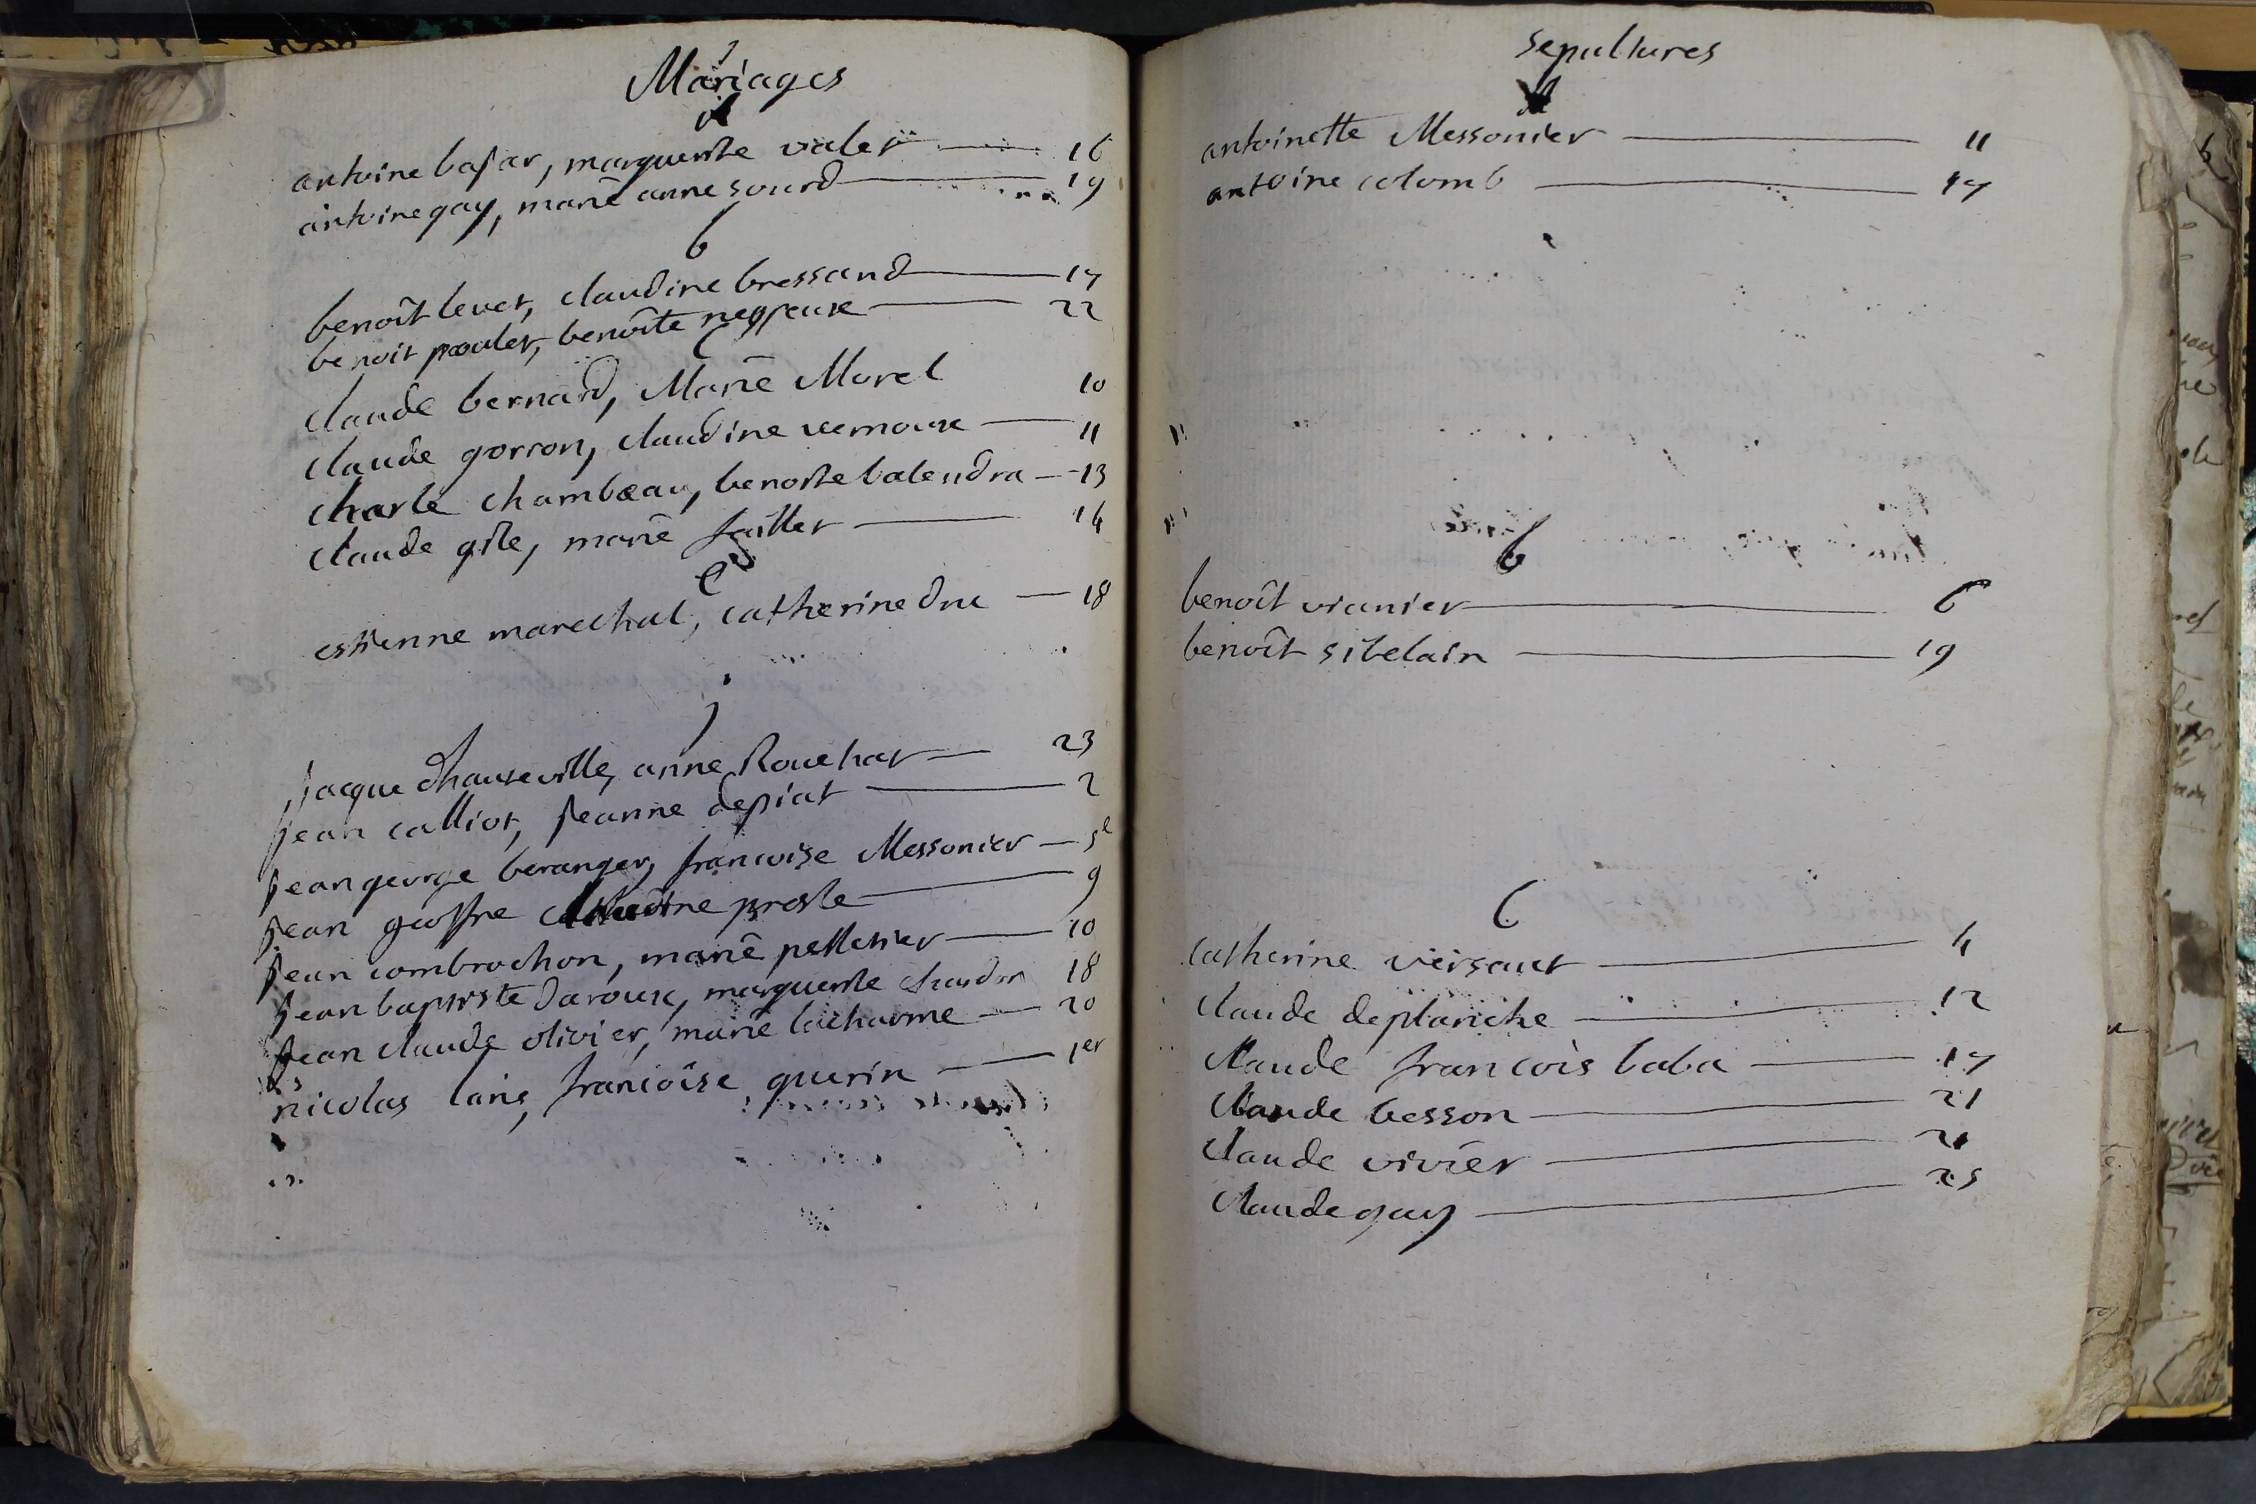 Mariages
a
antoine bajar, marguerite valet 16
antoine gay, marie anne sourd 19
b
benoît levet, claudine bressand 17
benoit poulet, benoîte neyreux 22
c
claude bernard, Marie Morel 10
claude gorron, claudine vernoux 11
charle chambeau, benoite balendra 13
claude gile, marie faillet 14
e
estienne marechal, catherine duc 18
j
jacque dhauteville, anne Rouchat 23
jean calliot, jeanne depiat 2
jean george beranger, francoise Messonier 5e
jean geoffre claudine proste 9
jean combrochon, marie pelletier 10
jean baptiste daroux, marguerite 18
jean claude olivier, marie lacharme 20
nicolas lane, francoise guerin 1er
sepultures
a
antoinette Messonier 11
antoine colomb 17
b
benoît vianier 6
benoît sibelain 19
c
catherine versaut 4
claude deplanche 12
claude francois baba 17
claude besson 21
claude vivier 21
claude gay 25